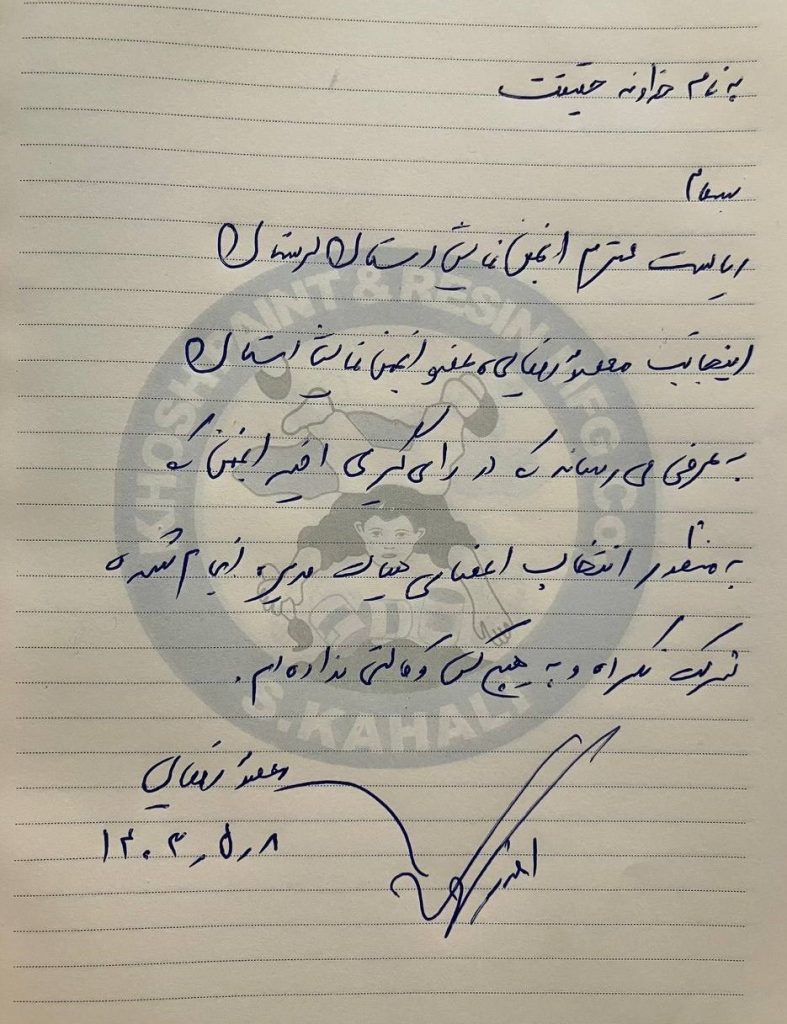 به نام خداوند حقیقت
سلام
ریاست محترم انجمن نمایش استان لرستان
اینجانب عضو انجمن نمایش استان
به عرض می رساند که در رای گیری اخیر انجمن که
به منظور انتخاب اعضای هیات مدیره انجام شده
شرکت نکرده و به هیچ کس وکالتی نداده ام.
۱۴۰۳٫۵٫۸
KHOSH PAINT & RESIN MFG.CO
S.KAHALI